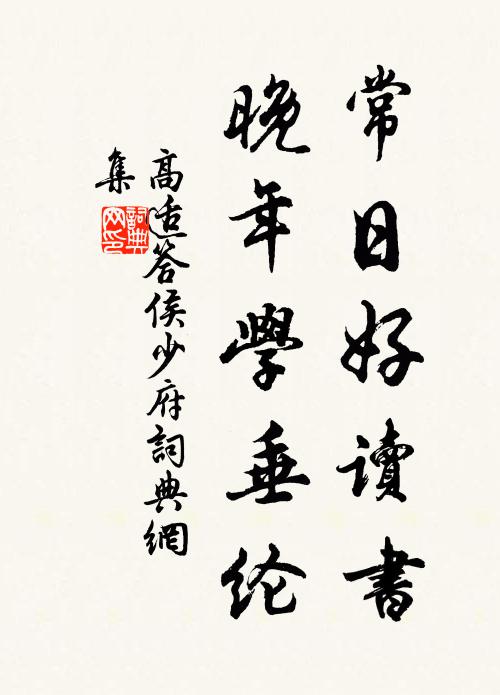 常日好讀書
晚年學垂纶
高适答侯少府詞典網
集
詞典网印